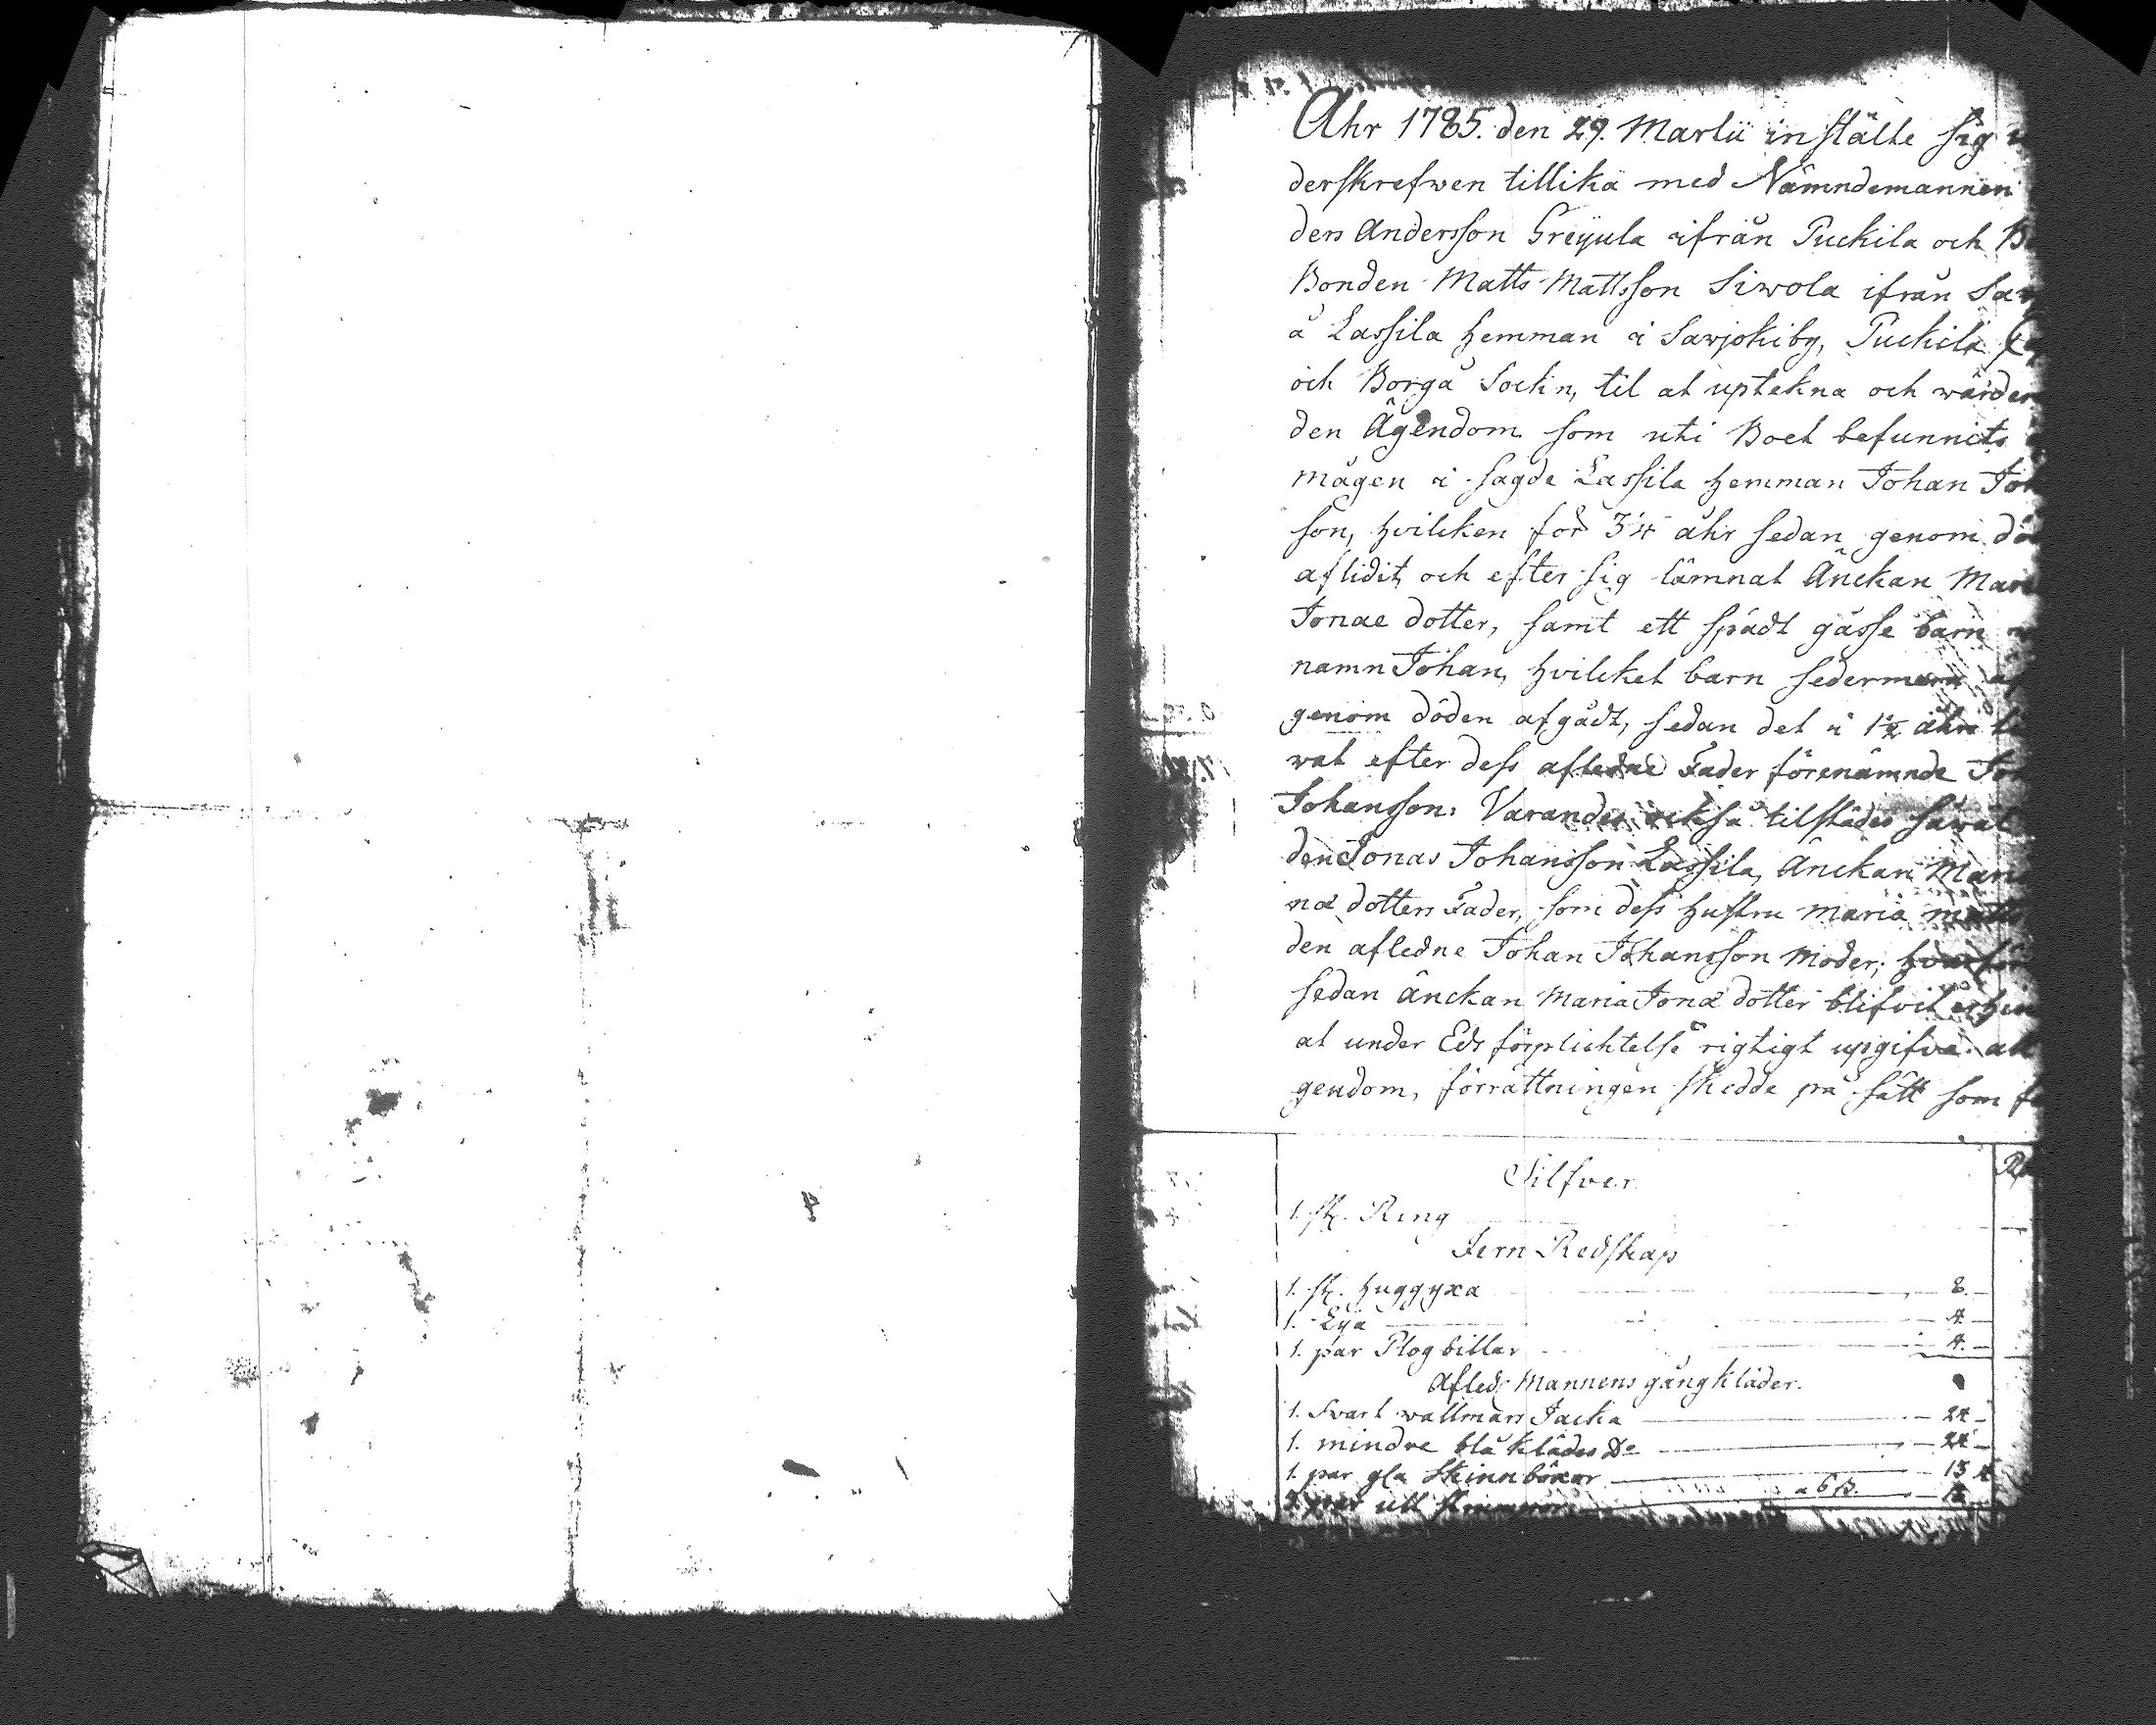 Ahr 1785. den 29. Martii instälte sig
derskrefwen tillika med Nämndemannen
ders Andersson Greijula ifrån Puckila och
Bonden Matts Mattsson Siwola ifrån
å Lassila hemman i Sawjokiby, Puckila
och Borgå Sockn, til at uptekna och wärder
den Ägendom som uti Boet befunnits
mågen å sagde Lassila hemman Johan Joh
son, hvilcken för 3/4 åhr sedan genom dö
aflidit, och efter sig lämnat Änckan Mar
Jonae dotter, samt ett spädt gåsse barn
namn Johan, hvilcket barn sedermera
genom döden afgådt, sedan det i 1 1/2 åhrs
wat efter dess afledne Fader förenämnde Joh
Johansson. Varandes också tilstädes såwäl
den Jonas Johansson Lassila, Änckan Mari
næ dotters Fader, som dess hustru Maria Matts
den afledne Johan Johansson Moder,
sedan änckan Maria Jonæ dotter blifvit
at under Eds förplichtelse rigtigt upgifva all
gendom, förrättningen skedde på sätt som
Silfver
1. st. Ring
Jern Redskap
1. st. huggyxa 8.
1. Lija 4
1. par Plogbillar 4.
Afled. Mannens gångkläder.
1. Svart wallmars Jacka 24
1. mindre blå klädes Do 24
1. par gla Skinnböxor 13 4
par ull à 6 ß. 12